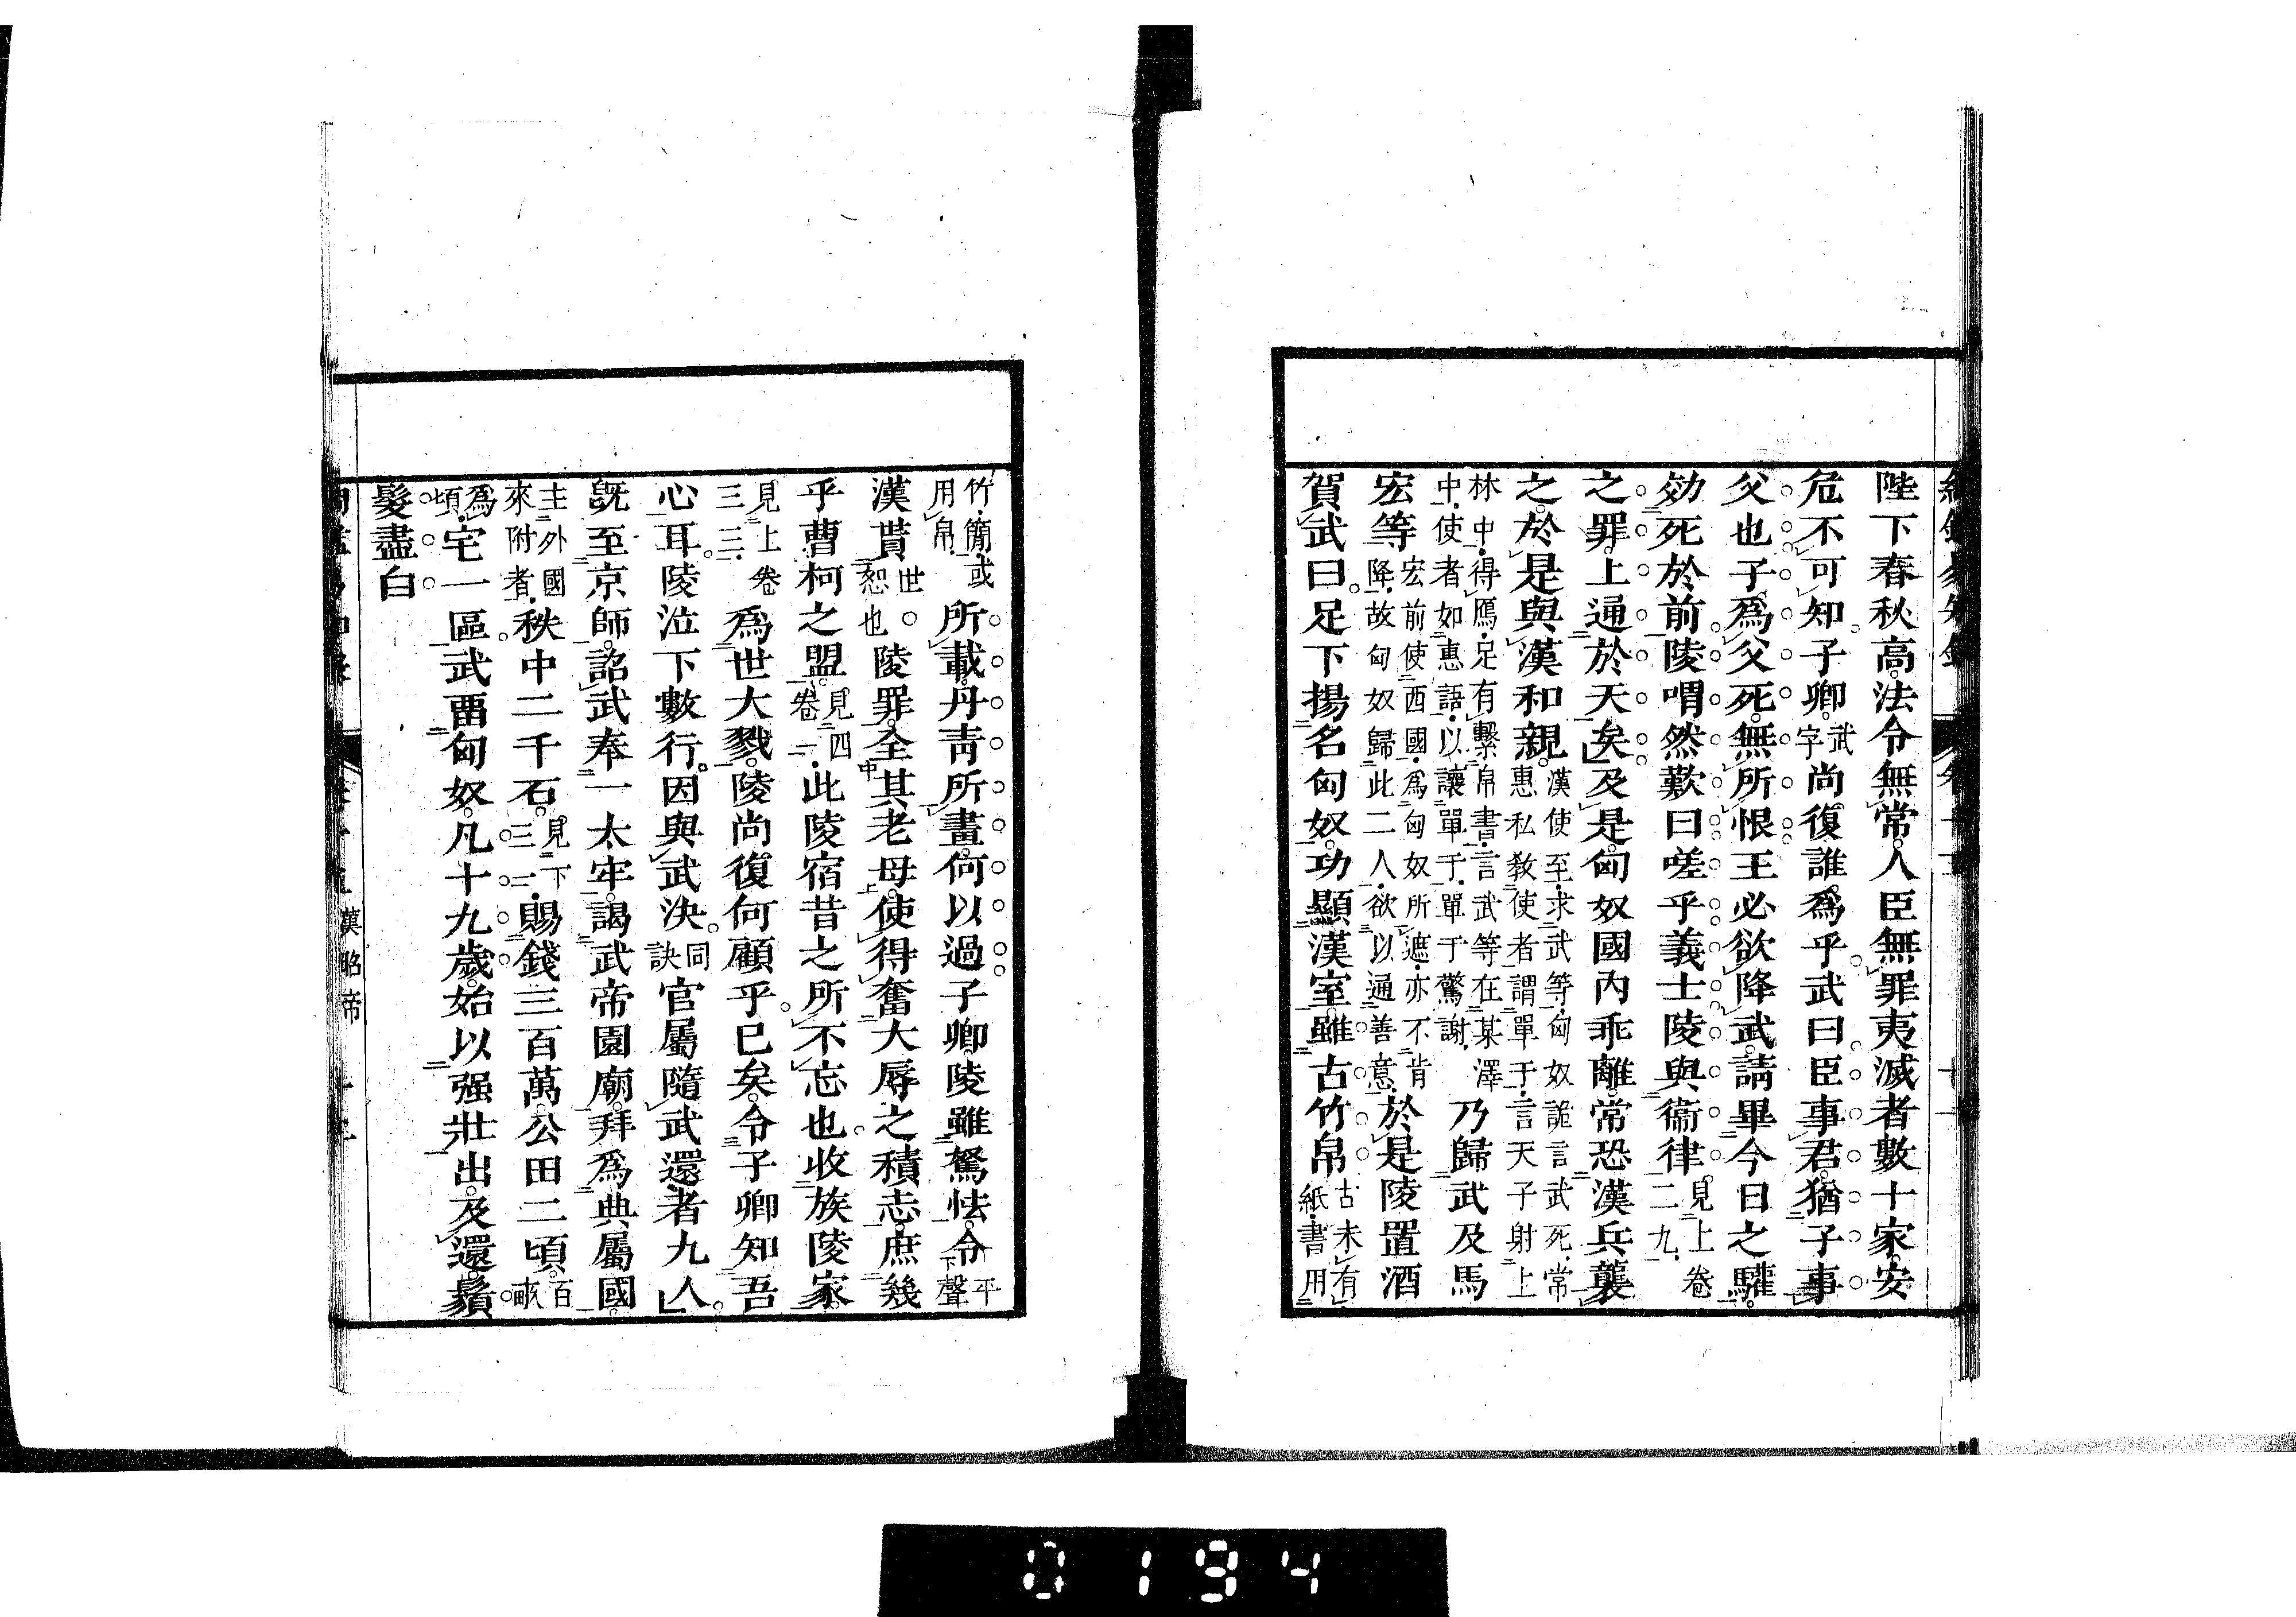 陛下春秋高法令無常人臣無罪夷滅者數十家安
危不可知子卿武字尚復誰爲乎武曰臣事君猶子事
父也子爲父死無所恨王必欲降武請畢今日之驩
効死於前陵喟然歎曰嗟乎義士陵與衞律見上卷二九
之罪上通於天矣及是匈奴國內乖離常恐漢兵襲
之於是與漢和親漢使至求武等匈奴詭言武死常惠私敎使者謂單于言天子射上
林中得鴈足有繫帛書言武等在某澤中使者如惠語以讓單于單于驚謝乃歸武及馬
宏等宏前使西國爲匈奴所遮亦不肯降故匈奴歸此二人欲以通善意於是陵置酒
賀武曰足下揚名匈奴功顯漢室雖古竹帛古未有紙書用
竹簡或用帛所載丹靑所畫何以過子卿陵雖駑怯令平聲下
漢貰世恕也陵罪全其老母使得奮大辱之積志庶幾
乎曹柯之盟見四卷一此陵宿昔之所不忘也收族陵家
見上卷三三爲世大戮陵尚復何顧乎已矣令子卿知吾
心耳陵泣下數行因與武決同訣官屬隨武還者九人
旣至京師詔武奉一太牢謁武帝園廟拜爲典屬國
主外國來附者秩中二千石見下三二賜錢三百萬公田二頃百畝
爲頃宅一區武畱匈奴凡十九歲始以强壯出及還鬚
髮盡白
漢昭帝
0194